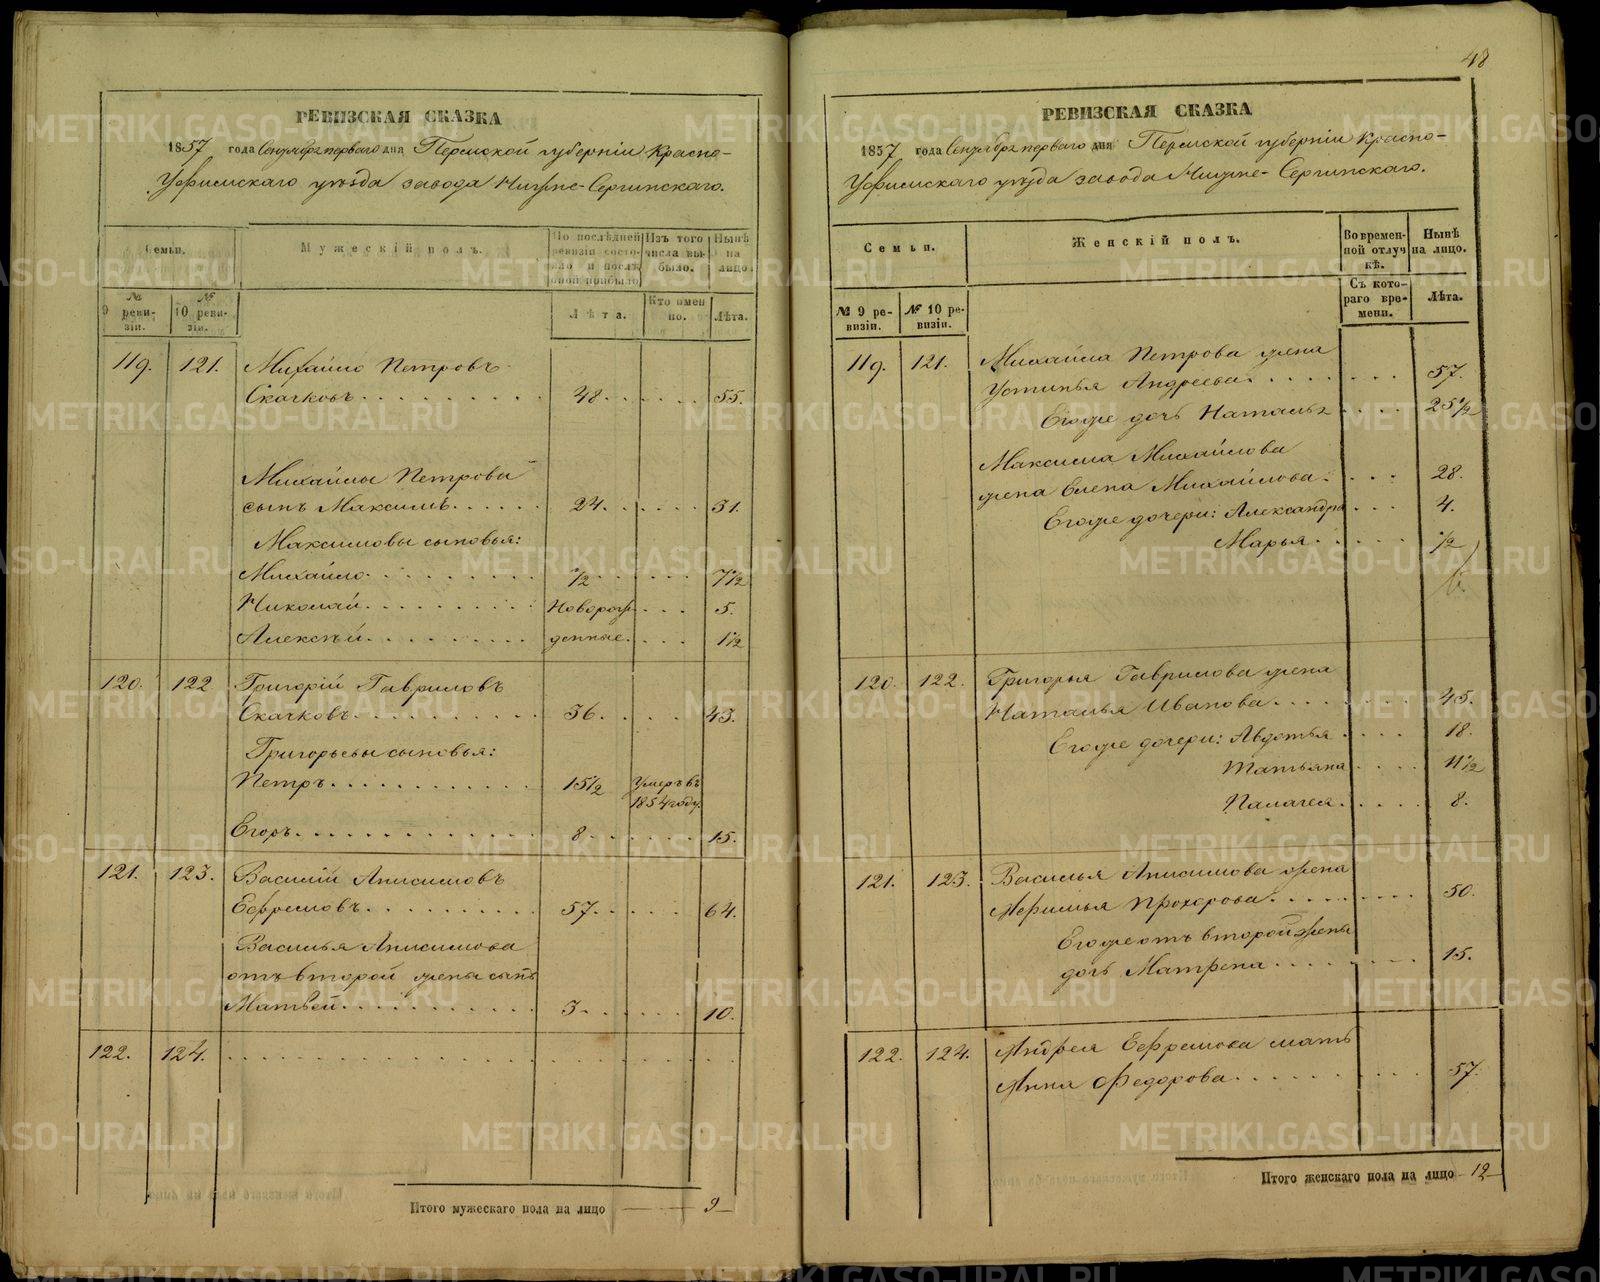 48
РЕВИЗСКАЯ СКАЗКА
1857 года Сентября перваго дня Пермской губерніи Красно-
Уфимскаго уѣзда завода Нижне-Сергинскаго.
Семьи.
Мужескій полъ.
По послѣдней ревизіи состояло и послѣ оной прибыло
Изъ того числа выбыло.
Нынѣ на лицо.
№ 9 ревизіи.
№ 10 ревизіи.
Лѣта.
Кто имено.
Лѣта.
119. 121. Михайло Петровъ
Скачковъ 48. 55.
Михайлы Петрова
сынъ Максимъ 24. 31.
Максимовы сыновья:
Михайло 1/2 7 1/2
НиколайНоворож- 5.
Алексѣй денные. 1 1/2
120. 122 Григорій Гавриловъ
Скачковъ 36. 43.
Григорьевы сыновья:
Петръ 15 1/2 Умеръ въ
1854 году.
Егоръ 8 15.
121. 123. Василій Анисимовъ
Ефремовъ 57. 64.
Василья Анисимова
отъ второй жены сынъ
Матвей 3 10.
122. 124.
Итого мужескаго пола на лицо 9
РЕВИЗСКАЯ СКАЗКА
1857 года Сентября перваго дня Пермской губерніи Красно-
Уфимскаго уѣзда завода Нижне-Сергинскаго.
Семьи.
Женскій полъ.
Во временной отлучкѣ.
Нынѣ на лицо.
№ 9 ревизіи.
№ 10 ревизіи.
Съ котораго времени.
Лѣта.
119. 121. Михайла Петрова жена
Устинья Андреева 57.
Егоже дочь Наталья 25 1/2
Максима Михайлова
жена Елена Михайлова 28.
Егоже дочери: Александра 4.
Марья 1/2
120. 122. Григорья Гаврилова жена
Наталья Иванова 45.
Егоже дочери: Авдотья 18.
Татьяна 11 1/2
Палагея 8.
121. 123. Василья Анисимова жена
Мефимья Прохорова 50.
Егоже отъ второй жены
дочь Матрена 15.
122. 124. Андрея Ефремова мать
Анна Федорова 57.
Итого женскаго пола на лицо 12
METRIKI.GASO-URAL.RU